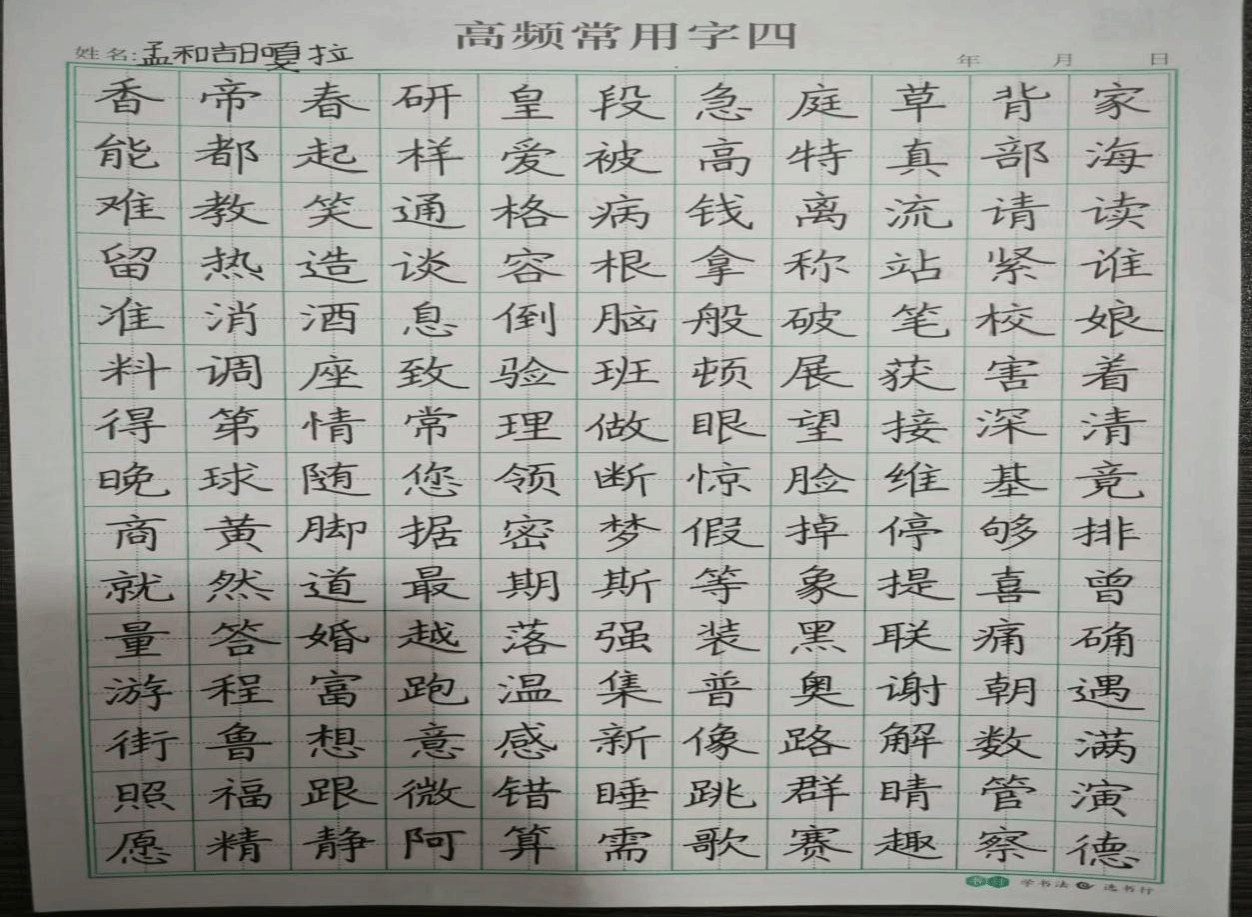 高频常用字四
姓名:孟和朝嘎拉 年 月 日
香帝春研皇段急庭草背家
能都起样爱被高特真部海
难教笑通格病钱离流请读
留热造谈容根拿称站紧谁
准消酒息倒脑般破笔校娘
料调座致验班顿展获害着
得第情常理做眼望接深清
晚球随您领断惊脸维基竟
商黄脚据密梦假掉停够排
就然道最期斯等象提喜曾
量答婚越落强装黑联痛确
游程富跑温集普奥谢朝遇
街鲁想意感新像路解数满
照福跟微错睡跳群睛管演
愿精静阿算需歌赛趣察德
学书法 选书行